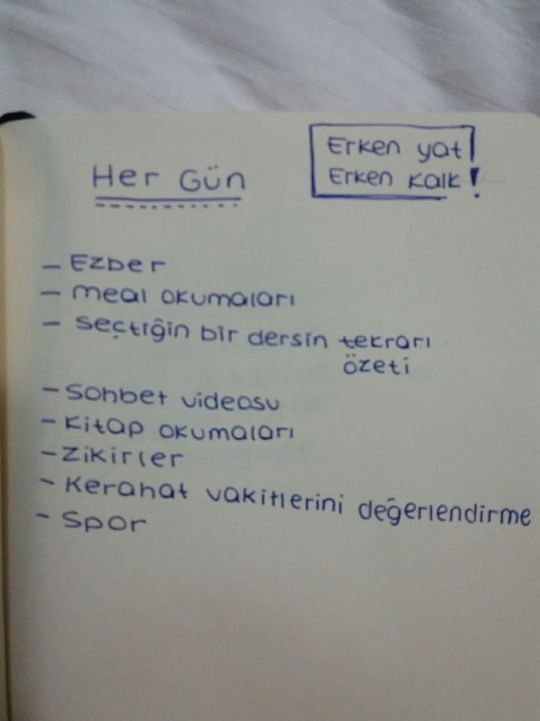 Her Gün
Erken yat
Erken kalk!
- Ezber
- meal okumaları
- seçtiğin bir dersin tekrarı
özeti
- Sohbet videosu
- Kitap okumaları
- Zikirler
- Kerahat vakitlerini değerlendirme
- Spor